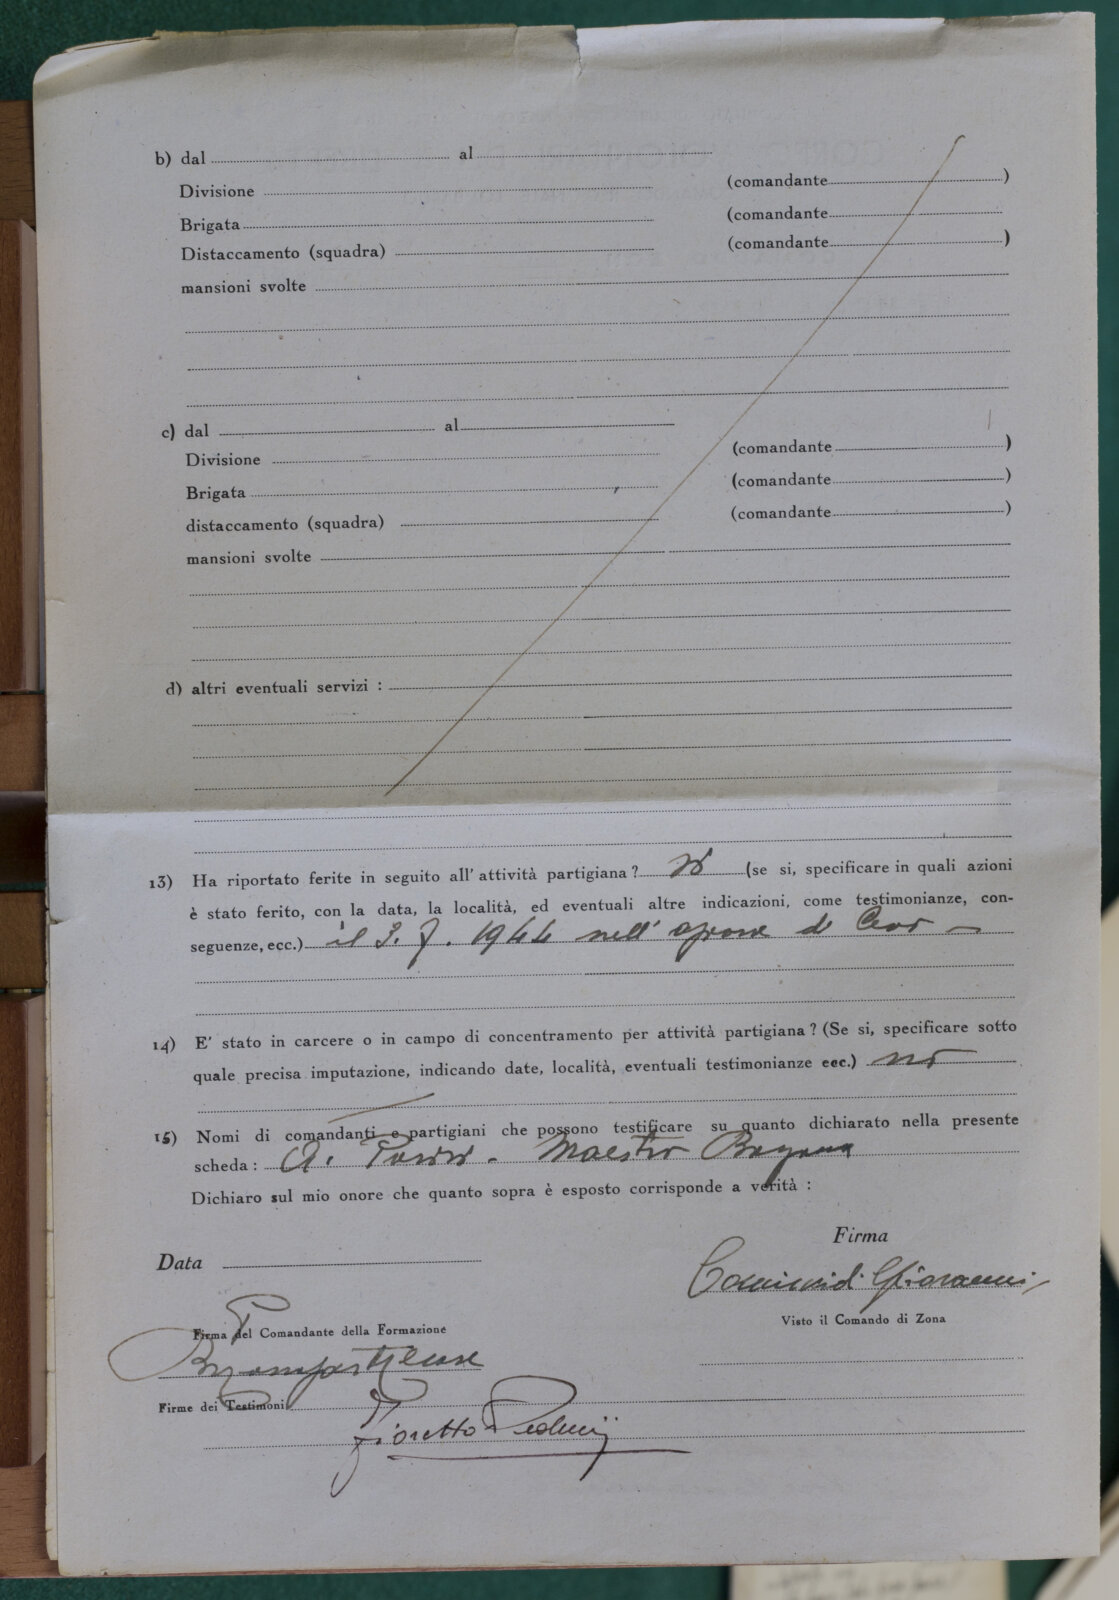 b) dal al
Divisione (comandante )
Brigata (comandante
Distaccamento (squadra) (comandante )
mansioni svolte
c) dal al
Divisione (comandante )
Brigata (comandante )
distaccamento (squadra) (comandante )
mansioni svolte
d) altri eventuali servizi :
13) Ha riportato ferite in seguito all' attività partigiana ? si (se si, specificare in quali azioni
è stato ferito, con la data, la località, ed eventuali altre indicazioni, come testimonianze, con-
seguenze, ecc.) il 3. 7. 1944 nell' di
14) E' stato in carcere o in campo di concentramento per attività partigiana ? (Se si, specificare sotto
quale precisa imputazione, indicando date, località, eventuali testimonianze ecc.) no
15) Nomi di comandanti e partigiani che possono testificare su quanto dichiarato nella presente
scheda : A. Maestro
Dichiaro sul mio onore che quanto sopra è esposto corrisponde a verità :
Firma
Data
Giovanni
Firma del Comandante della Formazione
Visto il Comando di Zona
Firme dei Testimoni
Fioretto